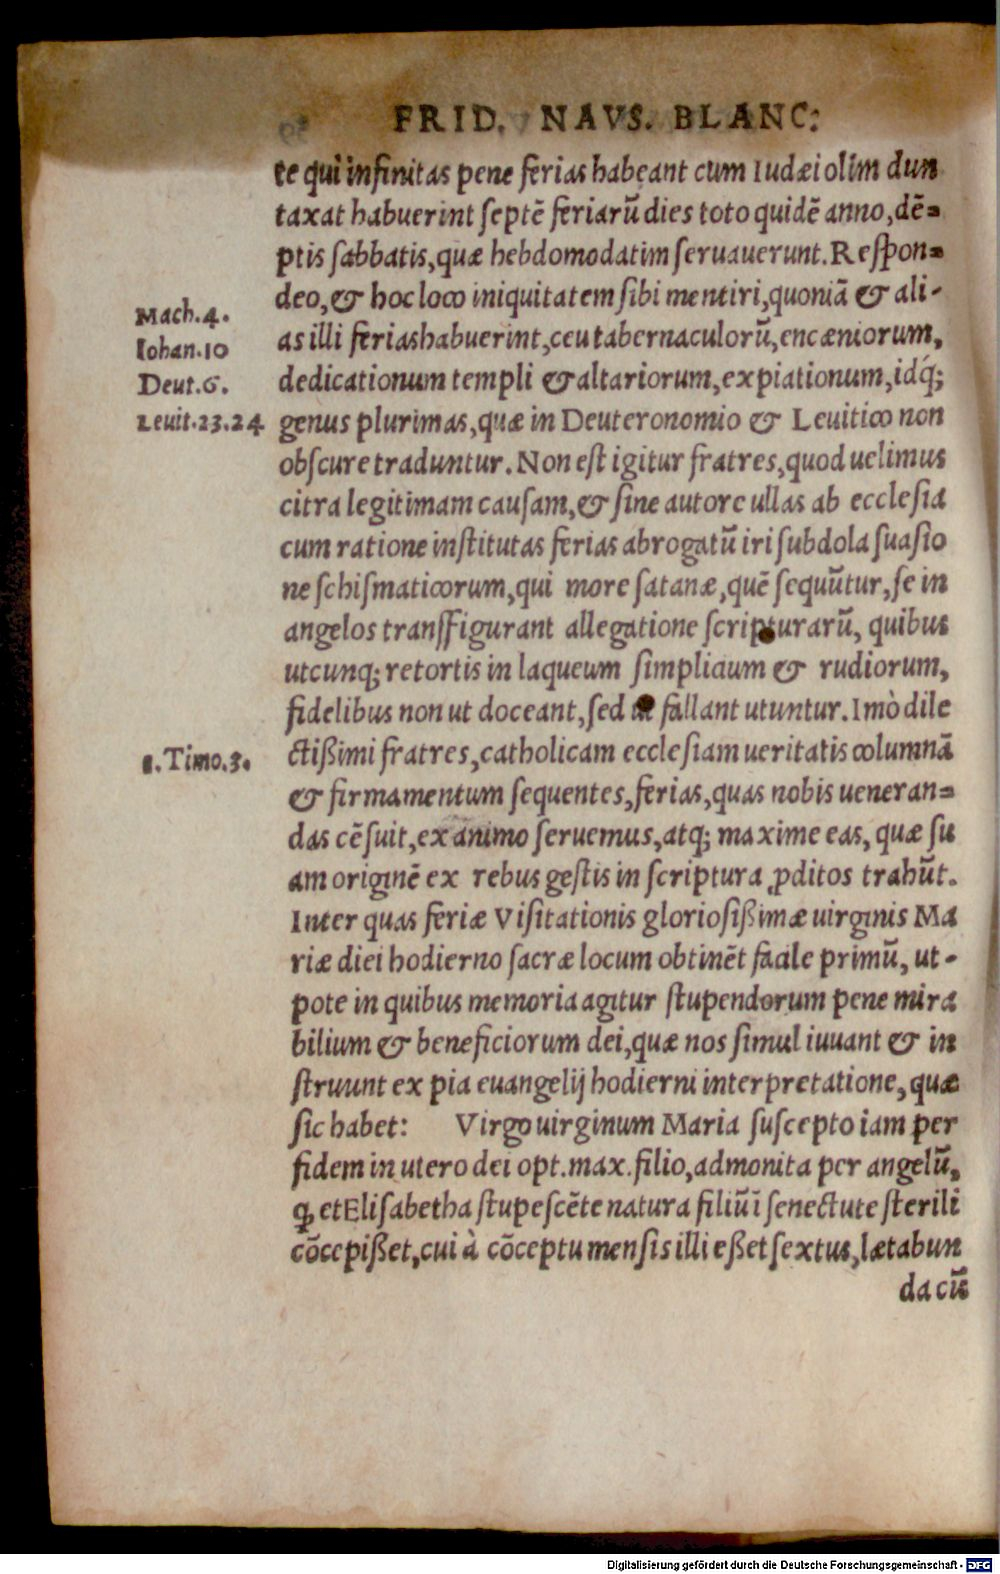 FRID. NAVS. BLANC:
te qui infinitas pene ferias habeant cum Iudæi olim dun
taxat habuerint ſeptē feriarū dies toto quidē anno, dē=
ptis ſabbatis, quæ hebdomodatim ſeruauerunt. Reſpon=
deo, & hoc loco iniquitatem ſibi mentiri, quoniā & ali-
Mach.4.
as illi ferias habuerint, ceu tabernaculorū, encæniorum,
Iohan.10
dedicationum templi & altariorum, expiationum, idq́;
Deut.6.
genus plurimas, quæ in Deuteronomio & Leuitico non
Leuit.23.24
obſcure traduntur. Non eſt igitur fratres, quod uelimus
citra legitimam cauſam, & ſine autore ullas ab eccleſia
cum ratione inſtitutas ferias abrogatū iri ſubdola ſuaſio
ne ſchiſmaticorum, qui more ſatanæ, quē ſequūtur, ſe in
angelos tranſſigurant allegatione ſcripturarū, quibus
utcunq; retortis in laqueum ſimplicium & rudiorum,
fidelibus non ut doceant, ſed ut fallant utuntur. Imò dile
ctißimi fratres, catholicam eccleſiam ueritatis columnā
1.Timo.3.
& firmamentum ſequentes, ferias, quas nobis ueneran=
das cēſuit, ex animo ſeruemus, atq; maxime eas, quæ ſu
am originē ex rebus geſtis in ſcriptura ꝓditos trahūt.
Inter quas feriæ Viſitationis glorioſißimæ uirginis Ma
riæ diei hodierno ſacræ locum obtinēt facile primū, ut-
pote in quibus memoria agitur ſtupendorum pene mira
bilium & beneficiorum dei, quæ nos ſimul iuuant & in
ſtruunt ex pia euangelij hodierni interpretatione, quæ
ſic habet: Virgo uirginum Maria ſuſcepto iam per
fidem in utero dei opt. max. filio, admonita per angelū,
ꝙ et Eliſabetha ſtupeſcēte natura filiū ī ſenectute ſterili
cōcepißet, cui à cōceptu menſis illi eßet ſextus, lætabun
da cū
Digitalisierung gefördert durch die Deutsche Forschungsgemeinschaft - DFG